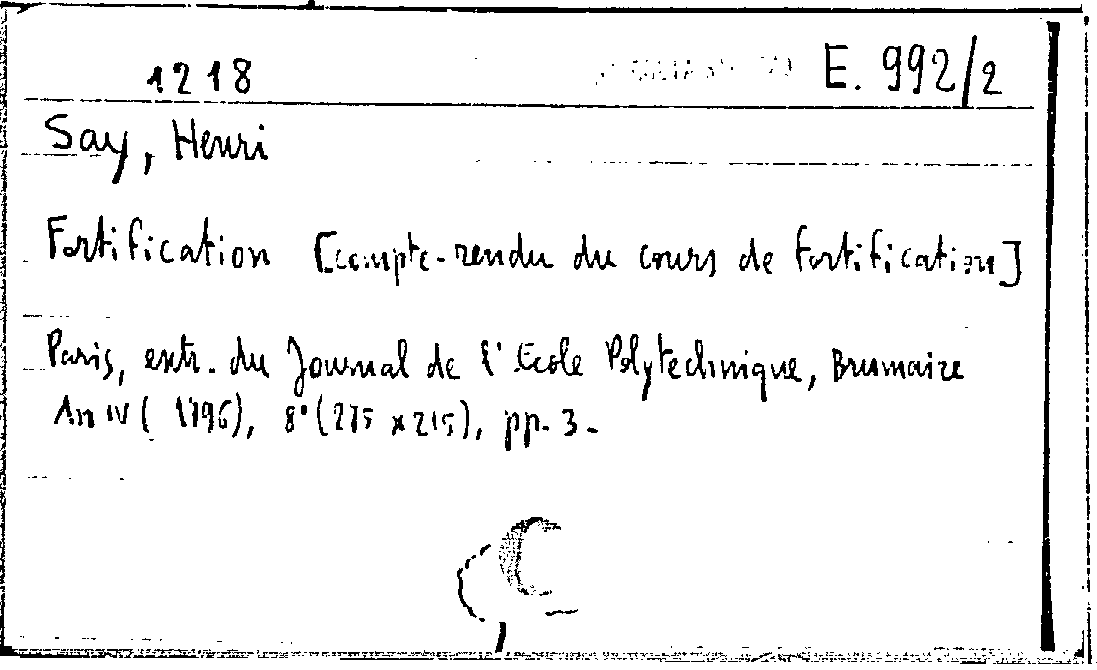 1218 E. 992/2
Say, Henri
Fortification [compte-rendu du cours de fortification]
Paris, extr. du Journal de l'Ecole Polytechnique, Brumaire
An IV (1796), 8° (275 x 215), pp. 3.-